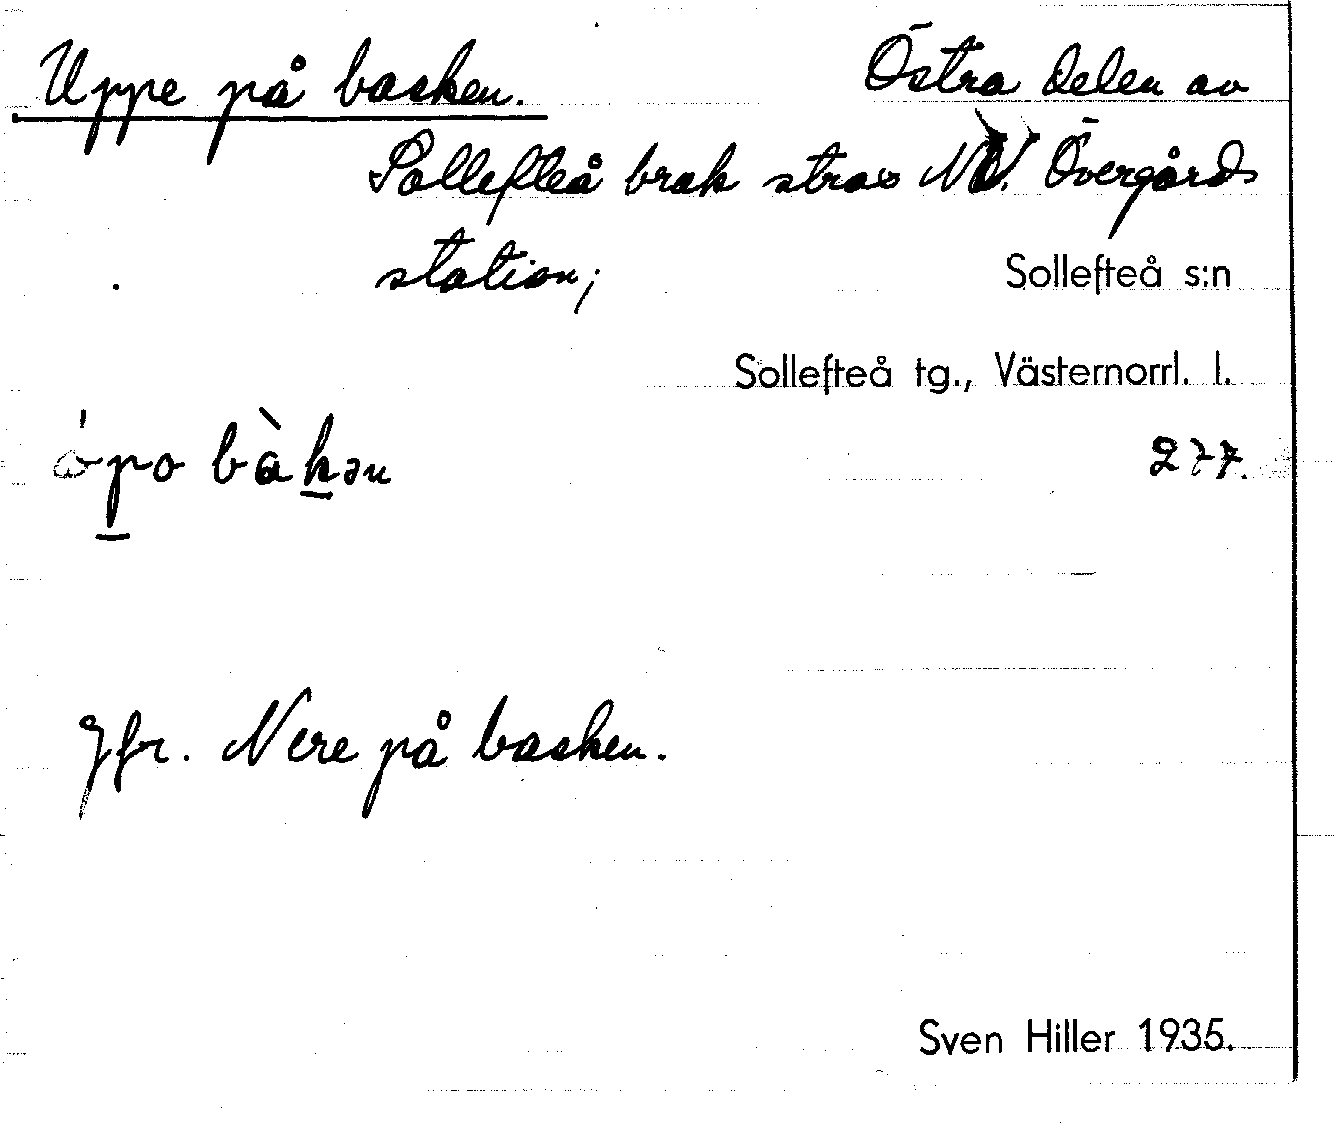 Uppe på backen. Östra delen av
Sollefteå brak strax NV. Övergårds
station;
Sollefteå s:n
Sollefteå tg., Västernorrl. l.
ópo bàkən 277.
Jfr. Nere på backen.
Sven Hiller 1935.